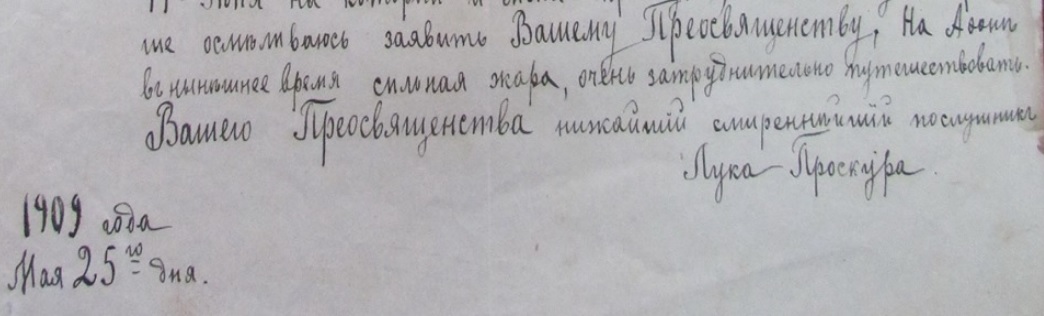 на
ше осмѣливаюсь заявить Вашему Преосвященству, На Аѳонѣ
въ нынѣшнее время сильная жара, очень затруднительно путешествовать.
Вашего Преосвященства нижайшій смиреннѣйшій послушникъ
Лука Проскура.
1909 года
Мая 25го дня.